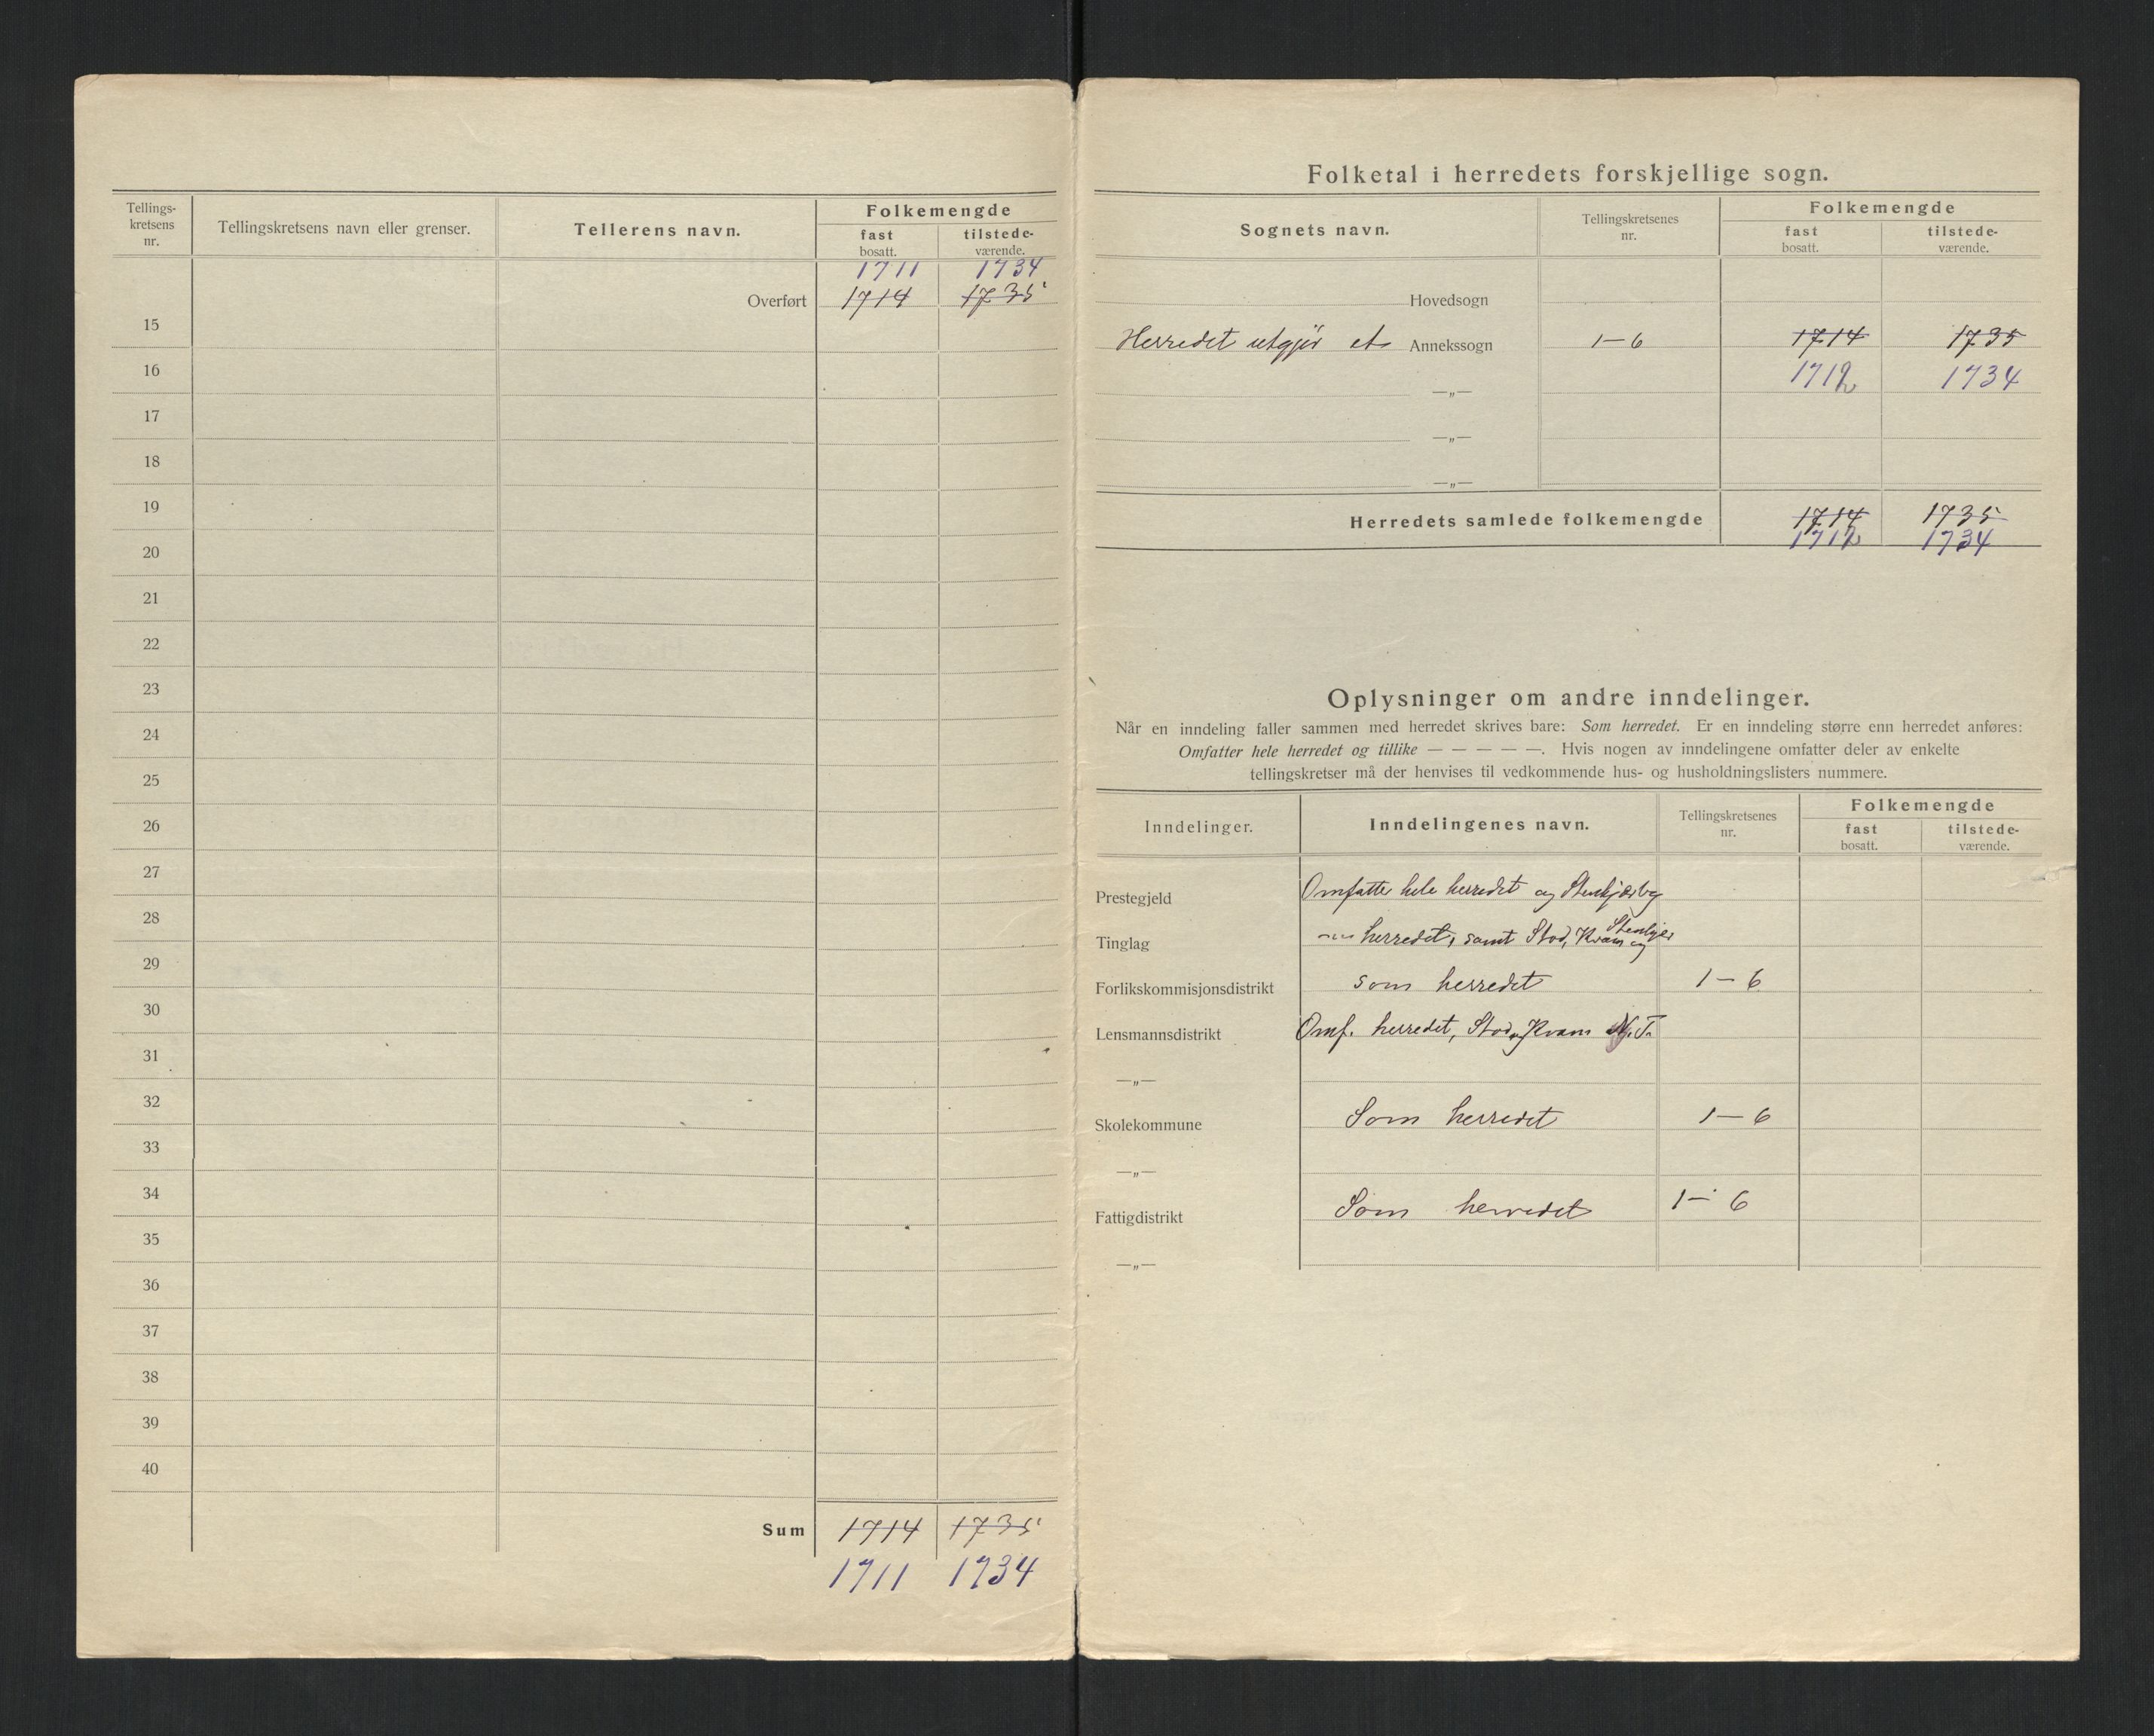 Tellings-
kretsens
nr.
Tellingskretsens navn eller grenser.
Tellerens navn.
Folkemengde
fast
bosatt.
tilstede-
værende.
1711 1734
Overført 1714 1735
15
16
17
18
19
20
21
22
23
24
25
26
27
28
29
30
31
32
33
34
35
36
37
38
39
40
Sum 1714 1735
1711 1734
Folketal i herredets forskjellige sogn.
Sognets navn.
Tellingskretsenes
nr.
Folkemengde
fast
bosatt.
tilstede-
værende.
Hovedsogn
Herredet utgjør et Annekssogn 1—6 1714 1735
—„— 1712 1734
—„—
—„—
Herredets samlede folkemengde 1714 1735
1712 1734
Oplysninger om andre inndelinger.
Når en inndeling faller sammen med herredet skrives bare: Som herredet. Er en inndeling større enn herredet anføres:
Omfatter hele herredet og tillike — — — — —. Hvis nogen av inndelingene omfatter deler av enkelte
tellingskretser må der henvises til vedkommende hus- og husholdningslisters nummere.
Inndelinger.
Inndelingenes navn.
Tellingskretsenes
nr.
Folkemengde
fast
bosatt.
tilstede-
værende.
Prestegjeld Omfatter hele herredet og Stenkjær by
Tinglag —„— herredet, samt Stod, Kvam og Stenkjær
Forlikskommisjonsdistrikt som herredet 1—6
Lensmannsdistrikt Omf. herredet, Stod, Kvam
—„—
Skolekommune Som herredet 1—6
—„—
Fattigdistrikt Som herredet 1—6
—„—